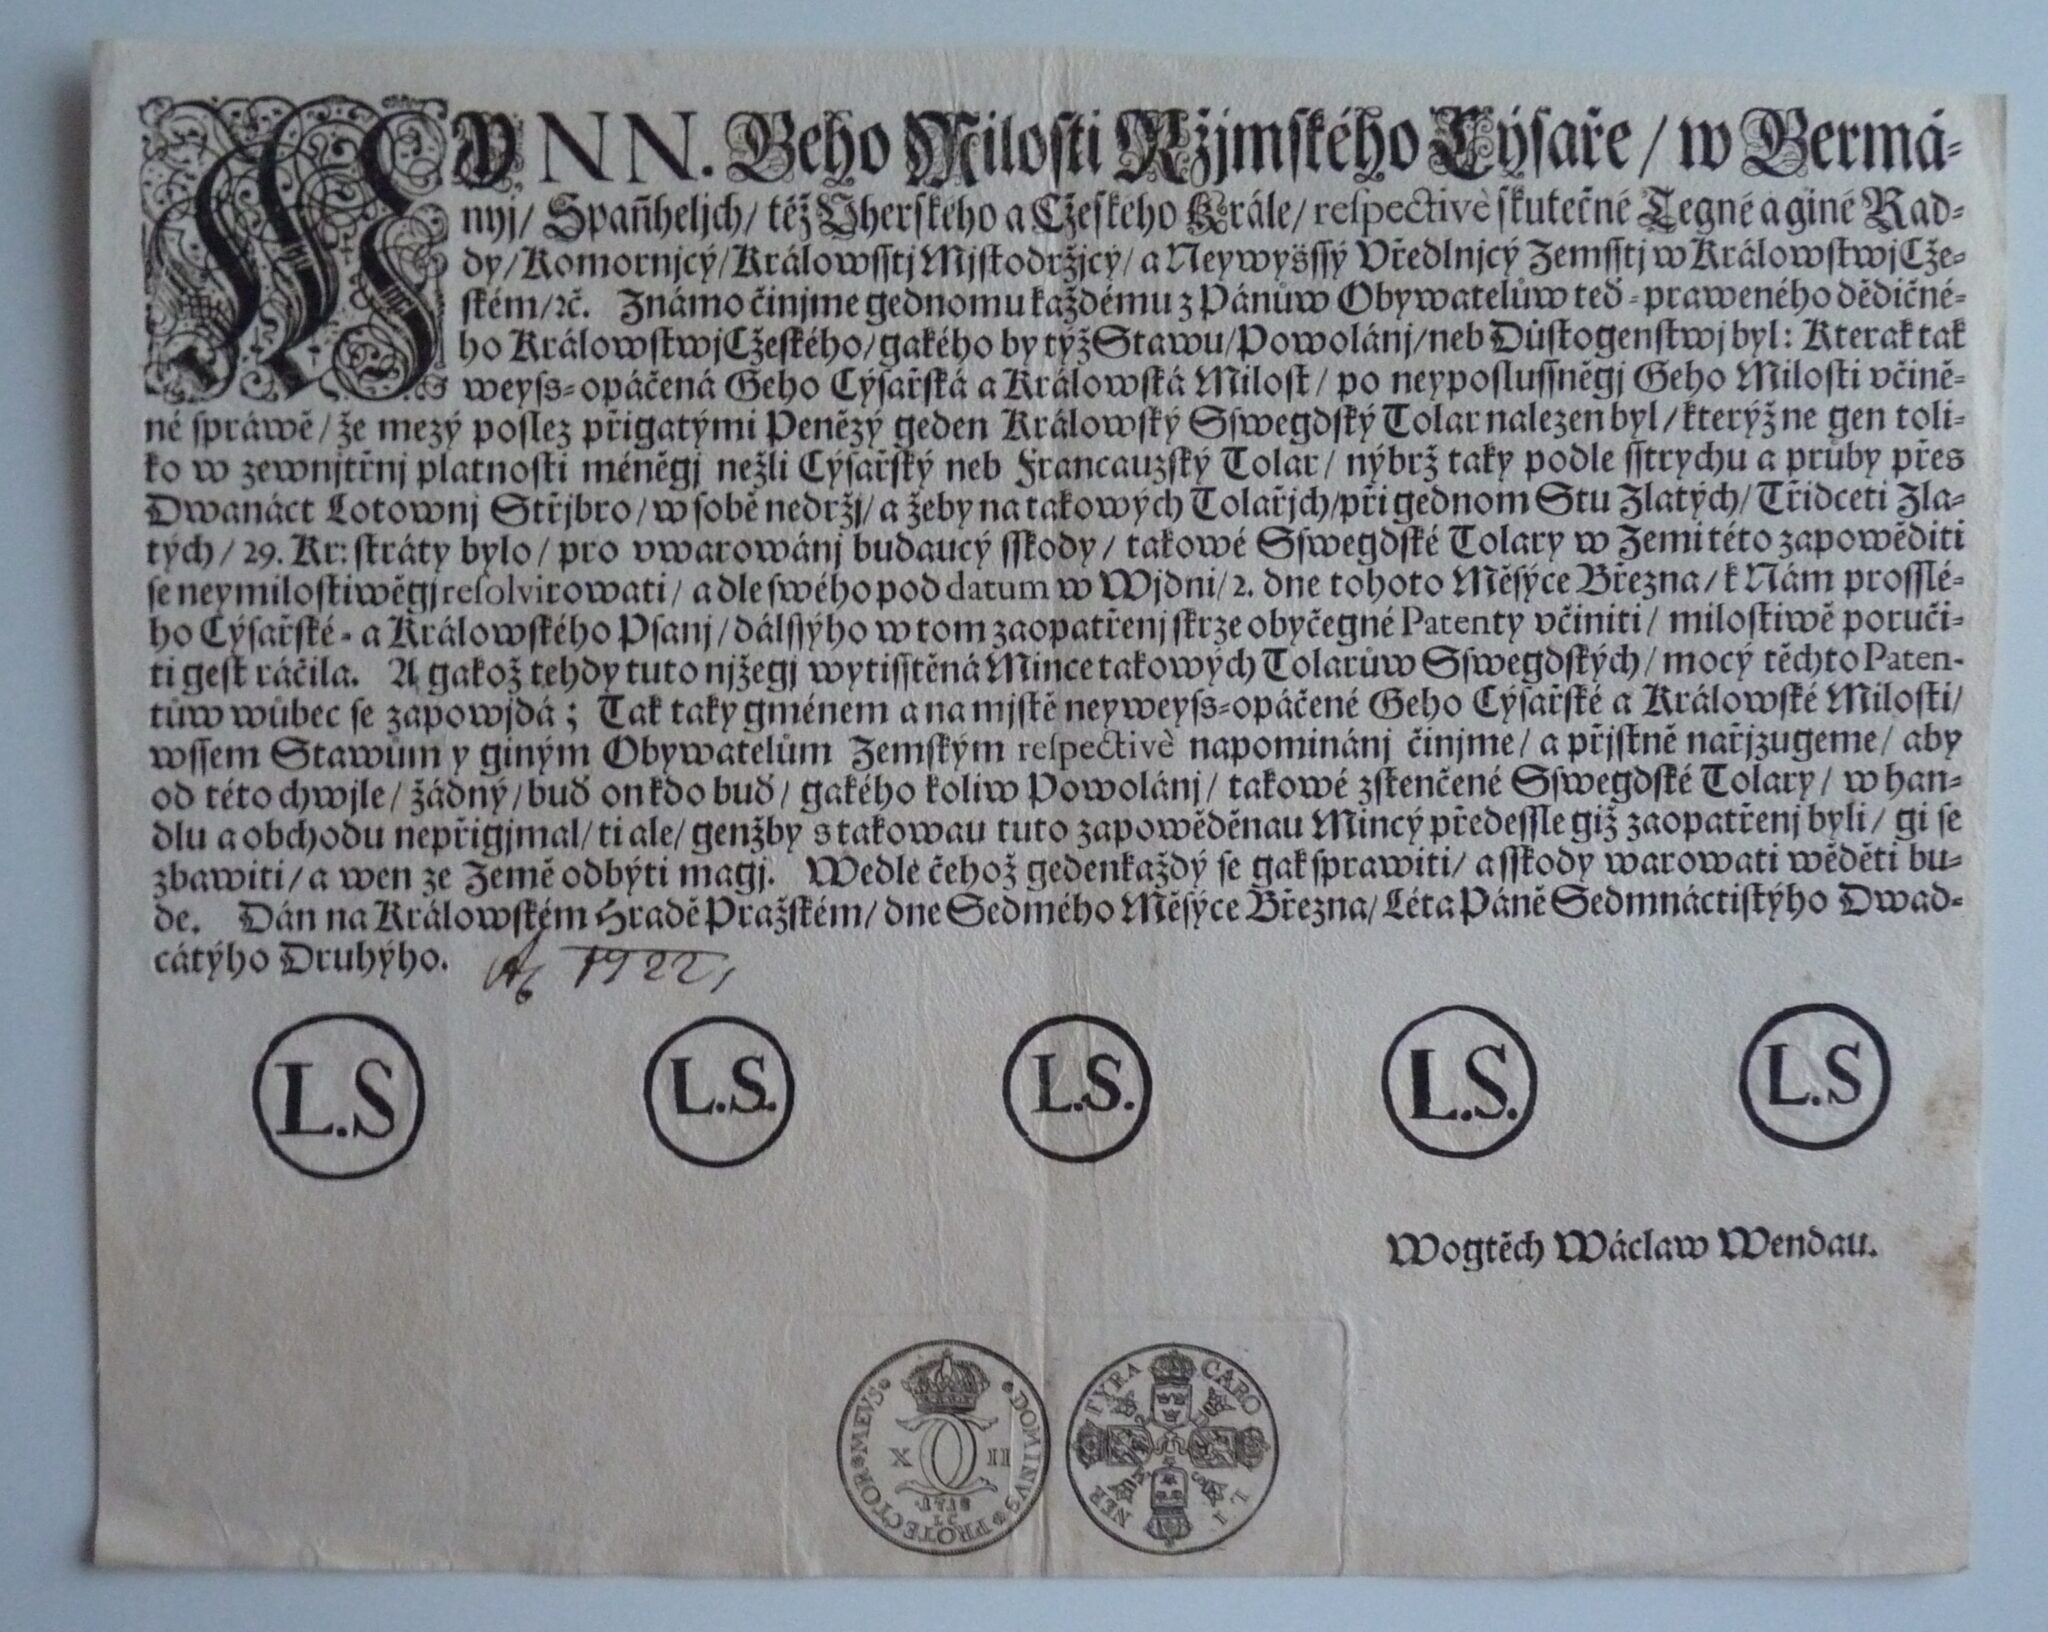 MY NN. Geho Milosti Ržjmského Cýsaře / w Germá-
nyj / Spaňheljch / též Vherského a Cžeského Krále / respectivè skutečné Tegné a giné Rad-
dy / Komornjcý / Králowsstj Mjstodržjcý / a Neywyšssý Vředlnjcý Zemsstj w Králowstwj Cže-
ském / ꝛč. Známo činjme gednomu každému z Pánůw Obywatelůw teď-praweného dědičné-
ho Králowstwj Cžeského / gakého by týž Stawu / Powolánj / neb Důstogenstwj byl: Kterak tak
weyss-opáčená Geho Cýsařská a Králowská Milost / po neyposlussněgj Geho Milosti včině-
né spráwě / že mezý poslez přigatými Penězý geden Králowský Sswegdský Tolar nalezen byl / kterýž ne gen toli-
ko w zewnjtřnj platnosti méněgj nežli Cýsařský neb Francauzský Tolar / nýbrž taky podle sstrychu a průby přes
Dwanáct Lotownj Střjbro / w sobě nedržj / a žeby na takowých Tolařjch / při gednom Stu Zlatých / Třidceti Zla-
tých / 29. Kr: stráty bylo / pro vwarowánj budaucý sskody / takowé Sswegdské Tolary w Zemi této zapowěditi
se neymilostiwěgj resolvirowati / a dle swého pod datum w Wjdni / 2. dne tohoto Měsýce Března / k Nám prosslé-
ho Cýsařské- a Králowského Psanj / dálssýho w tom zaopatřenj skrze obyčegné Patenty včiniti / milostiwě poruči-
ti gest ráčila. A gakož tehdy tuto njžegj wytisstěná Mince takowých Tolarůw Sswegdských / mocý těchto Paten-
tůw wůbec se zapowjdá; Tak taky gménem a na mjstě neyweyss-opáčené Geho Cýsařské a Králowské Milosti /
wssem Stawům y giným Obywatelům Zemským respectivè napomjnánj činjme / a přjstně nařjzugeme / aby
od této chwjle / žádný / buď on kdo buď / gakého koliw Powolánj / takowé zstenčené Sswegdské Tolary / w han-
dlu a obchodu nepřigjmal / ti ale / genžby s takowau tuto zapowěděnau Mincý předessle giž zaopatřenj byli / gi se
zbawiti / a wen ze Země odbýti magj. Wedlé čehož gedenkaždý se gak sprawiti / a sskody warowati wěděti bu-
de. Dán na Králowském Hradě Pražském / dne Sedmého Měsýce Března / Léta Páně Sedmnáctistýho Dwad-
cátýho Druhýho.
L.S L.S. L.S. L.S. L.S
Wogtěch Wáclaw Wendau.
DOMINVS PROTECTOR MEVS
X II
CARO
TYRA